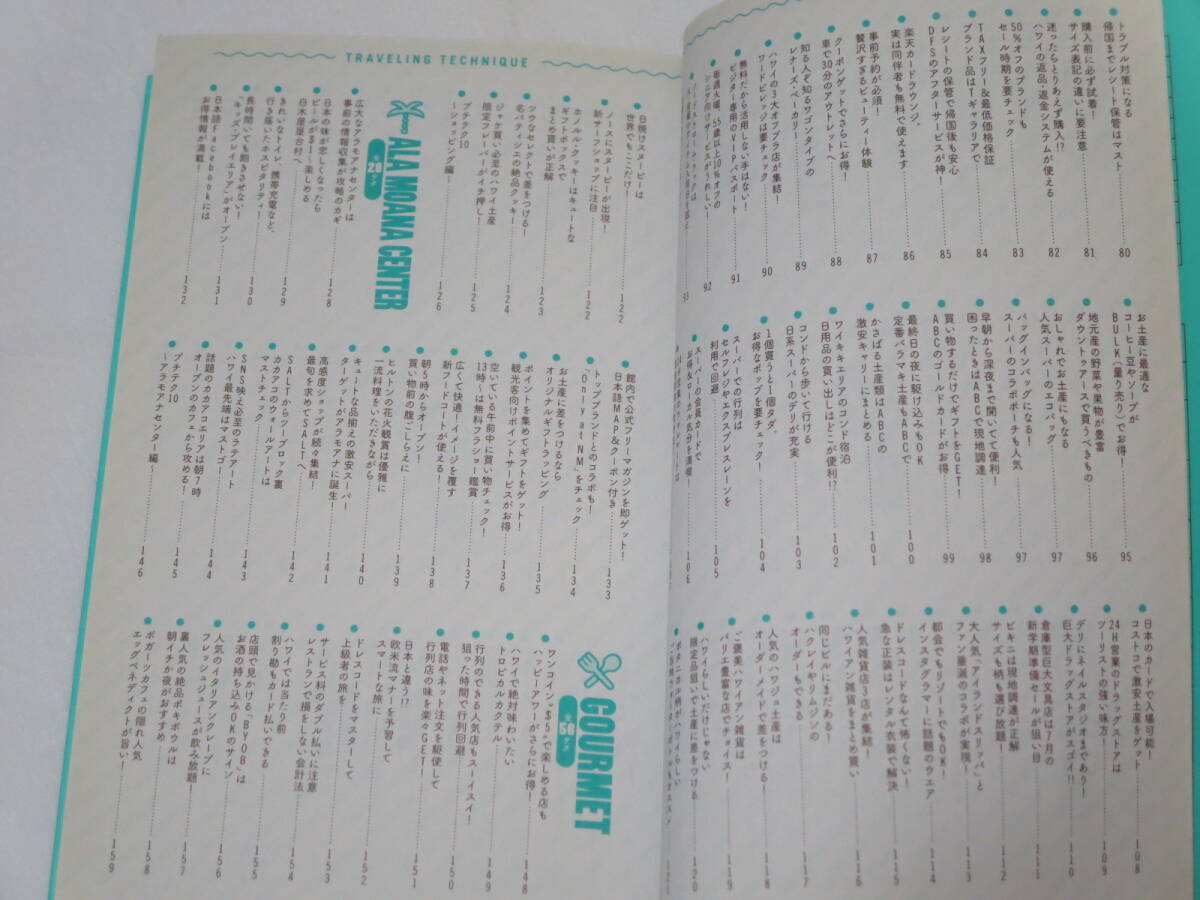 トラブル対策になる
帰国までレシート保管はマスト 80
購入前に必ず試着!
サイズ表記の違いに要注意 81
迷ったらとりあえず購入!?
ハワイの返品・返金システムが使える 82
50%オフのブランドも
セール時期を要チェック 83
TAXフリー&最低価格保証
ブランド品はTギャラリアで 84
レシートの保管で帰国後も安心
DFSのアフターサービスが神! 85
楽天カードラウンジ、
実は同伴者も無料で使えます 86
事前予約が必須!
贅沢すぎるビューティー体験 87
クーポンゲットでさらにお得!
車で30分のアウトレットへ 88
知る人ぞ知るワゴンタイプの
レナーズ・ベーカリー 89
ハワイの3大オフプラ店が集結!
ワードビレッジは要チェック 90
無料だから活用しない手はない!
ビジター専用のVIPパスポート 91
毎週火曜、55歳以上10%オフの
シニア向けサービスがうれしい! 92
93
お土産に最適な
コーヒー豆やソープが
BULK(量り売り)でお得! 95
地元産の野菜や果物が豊富
ダウントゥアースで買うべきもの 96
おしゃれでお土産にもなる
人気スーパーのエコバッグ 97
バッグインバッグになる!
スーパーのコラボポーチも人気 97
早朝から深夜まで開いてて便利!
困ったときはABCで現地調達 98
買い物するだけでギフトをGET!
ABCのゴールドカードがお得 99
最終日の夜に駆け込みもOK
定番バラマキ土産もABCで 100
かさばる土産類はABCの
激安キャリーにまとめる 101
ワイキキエリアのコンド宿泊
日用品の買い出しはどこが便利!? 102
コンドから歩いて行ける
日系スーパーのデリが充実 103
1個買うと1個タダ、
お得なポップを要チェック! 104
スーパーでの行列は
セルフレジやエクスプレスレーンを
利用で回避 105
スーパーの会員カードで
お得なロコ価格気分を満喫 106
日本のカードで入場可能!
コストコで激安土産をゲット 108
24H営業のドラッグストアは
ツーリストの強い味方! 109
デリにネイルにスタジオまであり!
巨大ドラッグストアがスゴイ!! 110
倉庫型巨大文具店は7月の
新学期準備セールが狙い目 111
ビキニは現地調達が正解
サイズも柄も選び放題! 112
大人気「アイランドスリッパ」と
ファン垂涎のコラボが実現 113
都会でもリゾートでもOK!
インスタグラマーに話題のウェア 114
ドレスコードなんて怖くない!
急な正装はレンタル衣装で解決 115
人気雑貨店3店が集結!
ハワイアン雑貨をまとめ買い 116
同じビルにまだある!
ハクレイやリムジンの
オーダーもできる 117
人気のハワジュ土産は
オーダーメイドで差をつける! 118
ご褒美ハワイアン雑貨は
バリエ豊富な店でチョイス! 119
ハワイらしさだけじゃない
限定品狙いで土産に差をつける 120
TRAVELING TECHNIQUE
日焼けスヌーピーは
世界でもここだけ! 122
ノースにスヌーピーが出現!
新サーフショップに注目 122
ホノルル・クッキーはキュートな
ギフトボックスで
まとめ買いが正解 123
ツウなセレクトで差をつける!
名パティシエの絶品クッキー 124
ジャケ買い必至のハワイ土産
限定フレーバーがイチ押し! 125
プチテク10
〜ショッピング編〜 126
ALA MOANA CENTER
全28テク
広大なアラモアナセンターは
事前の情報収集が攻略のカギ 128
日本の味が恋しくなったら
ビールが$1〜楽しめる
白木屋屋台村へ 129
きれいなトイレ、携帯充電など、
行き届いたホスピタリティ! 129
長時間いても飽きさせない!
「キッズ・プレイエリア」がオープン 130
日本語Facebookには
お得情報が満載! 132
館内で公式フリーマガジンを即ゲット!
日本語MAP&クーポン付き 133
トップブランドとのコラボも!
「Only at NM」をチェック 134
お土産に差をつけるなら
オリジナルギフトラッピング 135
ポイントを集めてギフトをゲット!
観光客向けポイントサービスがお得 136
空いている午前中に買い物チェック!
13時〜は無料フラショー鑑賞 137
広くて快適!イメージを覆す
新フードコートが使える! 138
朝5時からオープン!
買い物前の腹ごしらえに 138
ヒルトンの花火観賞は優雅に
一流料理をいただきながら 139
キュートな品揃えの激安スーパー
ターゲットがアラモアナに誕生! 140
高感度ショップが続々集結!
最旬を求めてSALTへ 141
SALTからワープロック裏
カカアコのウォールアートは
マストチェック 142
SNS映え必至のラテアート
ハワイ最先端はマストゴー 143
話題のカカアコエリアは朝7時
オープンのカフェから攻める! 144
プチテク10
〜アラモアナセンター編〜 146
GOURMET
全56テク
ワンコイン“$5”で楽しめる店も
ハッピーアワーがさらにお得! 148
ハワイで絶対味わいたい
トロピカルカクテル 149
行列のできる人気店もスイスイ!
狙った時間で行列回避 149
電話やネット注文を駆使して
行列店の味を楽々GET! 150
日本と違う!?
欧米流マナーを予習して
スマートな旅に 151
ドレスコードをマスターして
上級者の旅を 152
サービス料のダブル払いに注意
レストランで損をしない会計法 153
ハワイでは当たり前
割り勘もカード払いできる 154
店頭で見かける、「BYOB」は
お酒の持ち込みOKのサイン 155
人気のイタリアンクレープに
フレッシュジュースが飲み放題! 156
裏人気の絶品ポキボウルは
朝イチか夜がおすすめ 157
ボガーツカフェの隠れ人気
エッグベネディクトが旨い! 159